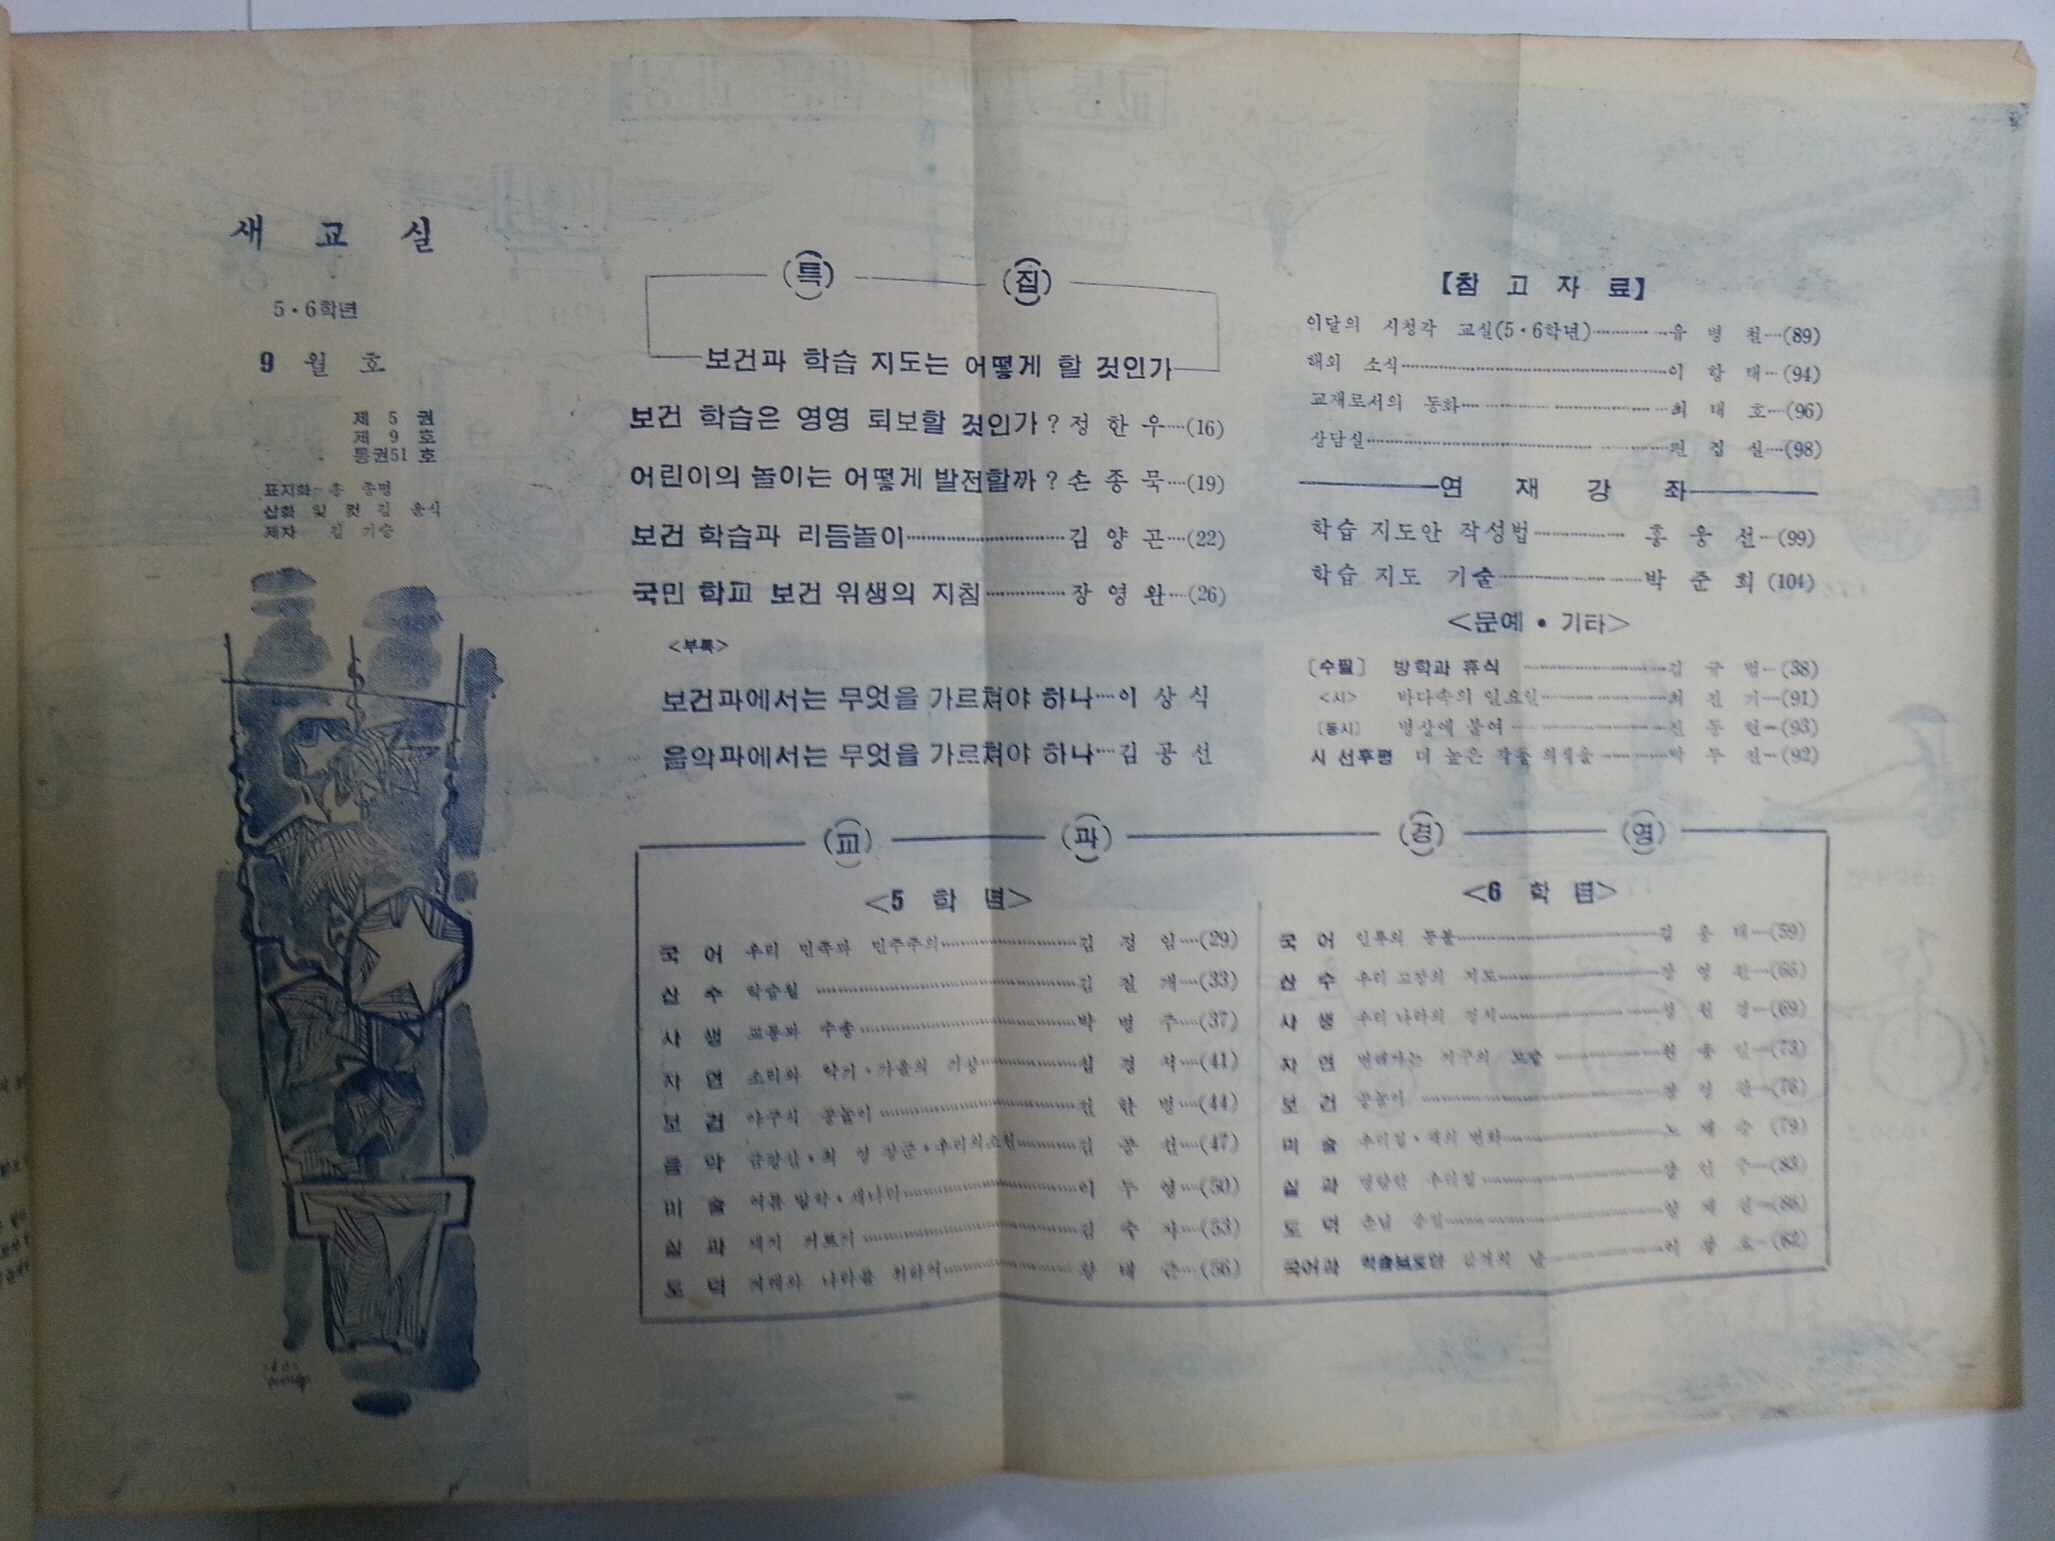 새 교 실
5·6학년
9 월 호
제 5 권
제 9 호
통권51 호
표지화 홍 종명
삽화 및 컷 김 윤식
제자 김 기승
(특) (집)
보건과 학습 지도는 어떻게 할 것인가
보건 학습은 영영 퇴보할 것인가? 정 한 우…(16)
어린이의 놀이는 어떻게 발전할까? 손 종 묵…(19)
보건 학습과 리듬놀이…김 양 곤…(22)
국민 학교 보건 위생의 지침…장 영 완…(26)
<부록>
보건과에서는 무엇을 가르쳐야 하나…이 상 식
음악과에서는 무엇을 가르쳐야 하나…김 공 선
【참 고 자 료】
이달의 시청각 교실(5·6학년)…유 병 천…(89)
해외 소식…이 항 태…(94)
교재로서의 동화…최 태 호…(96)
상담실…편 집 실…(98)
연 재 강 좌
학습 지도안 작성법…홍 웅 선…(99)
학습 지도 기술…박 준 희 (104)
<문예·기타>
[수필] 방학과 휴식…김 규 범…(38)
<시> 바다속의 일요일…최 진 기…(91)
[동시] 병상에 붙여…신 동 현…(93)
시 선후평 더 높은 작품 의식을…박 두 진…(92)
(교) (과) (경) (영)
<5 학 년>
국 어 우리 민족과 민주주의…김 정 임…(29)
산 수 학습월…김 철 개…(33)
사 생 교통과 수송…박 병 주…(37)
자 연 소리와 악기·가을의 기상…심 경 석…(41)
보 건 야구식 공놀이…전 한 병…(44)
음 악 금강산·최 영 장군·우리의소원…김 공 선…(47)
미 술 여름 방학·새나라…이 두 영…(50)
실 과 돼지 기르기…김 숙 자…(53)
도 덕 겨레와 나라를 위하여…황 태 근…(56)
<6 학 년>
국 어 인류의 등불…김 송 태…(59)
산 수 우리 고장의 지도…(66)
사 생 우리 나라의 정치…(69)
자 연 변해가는 지구의 모양…(73)
보 건 공놀이…장 영 완…(76)
미 술 우리집·색의 변화…노 재 승 (79)
실 과 명랑한 우리집…(83)
도 덕 손님…(88)
국어과 학습보도안 감격의 날…(62)